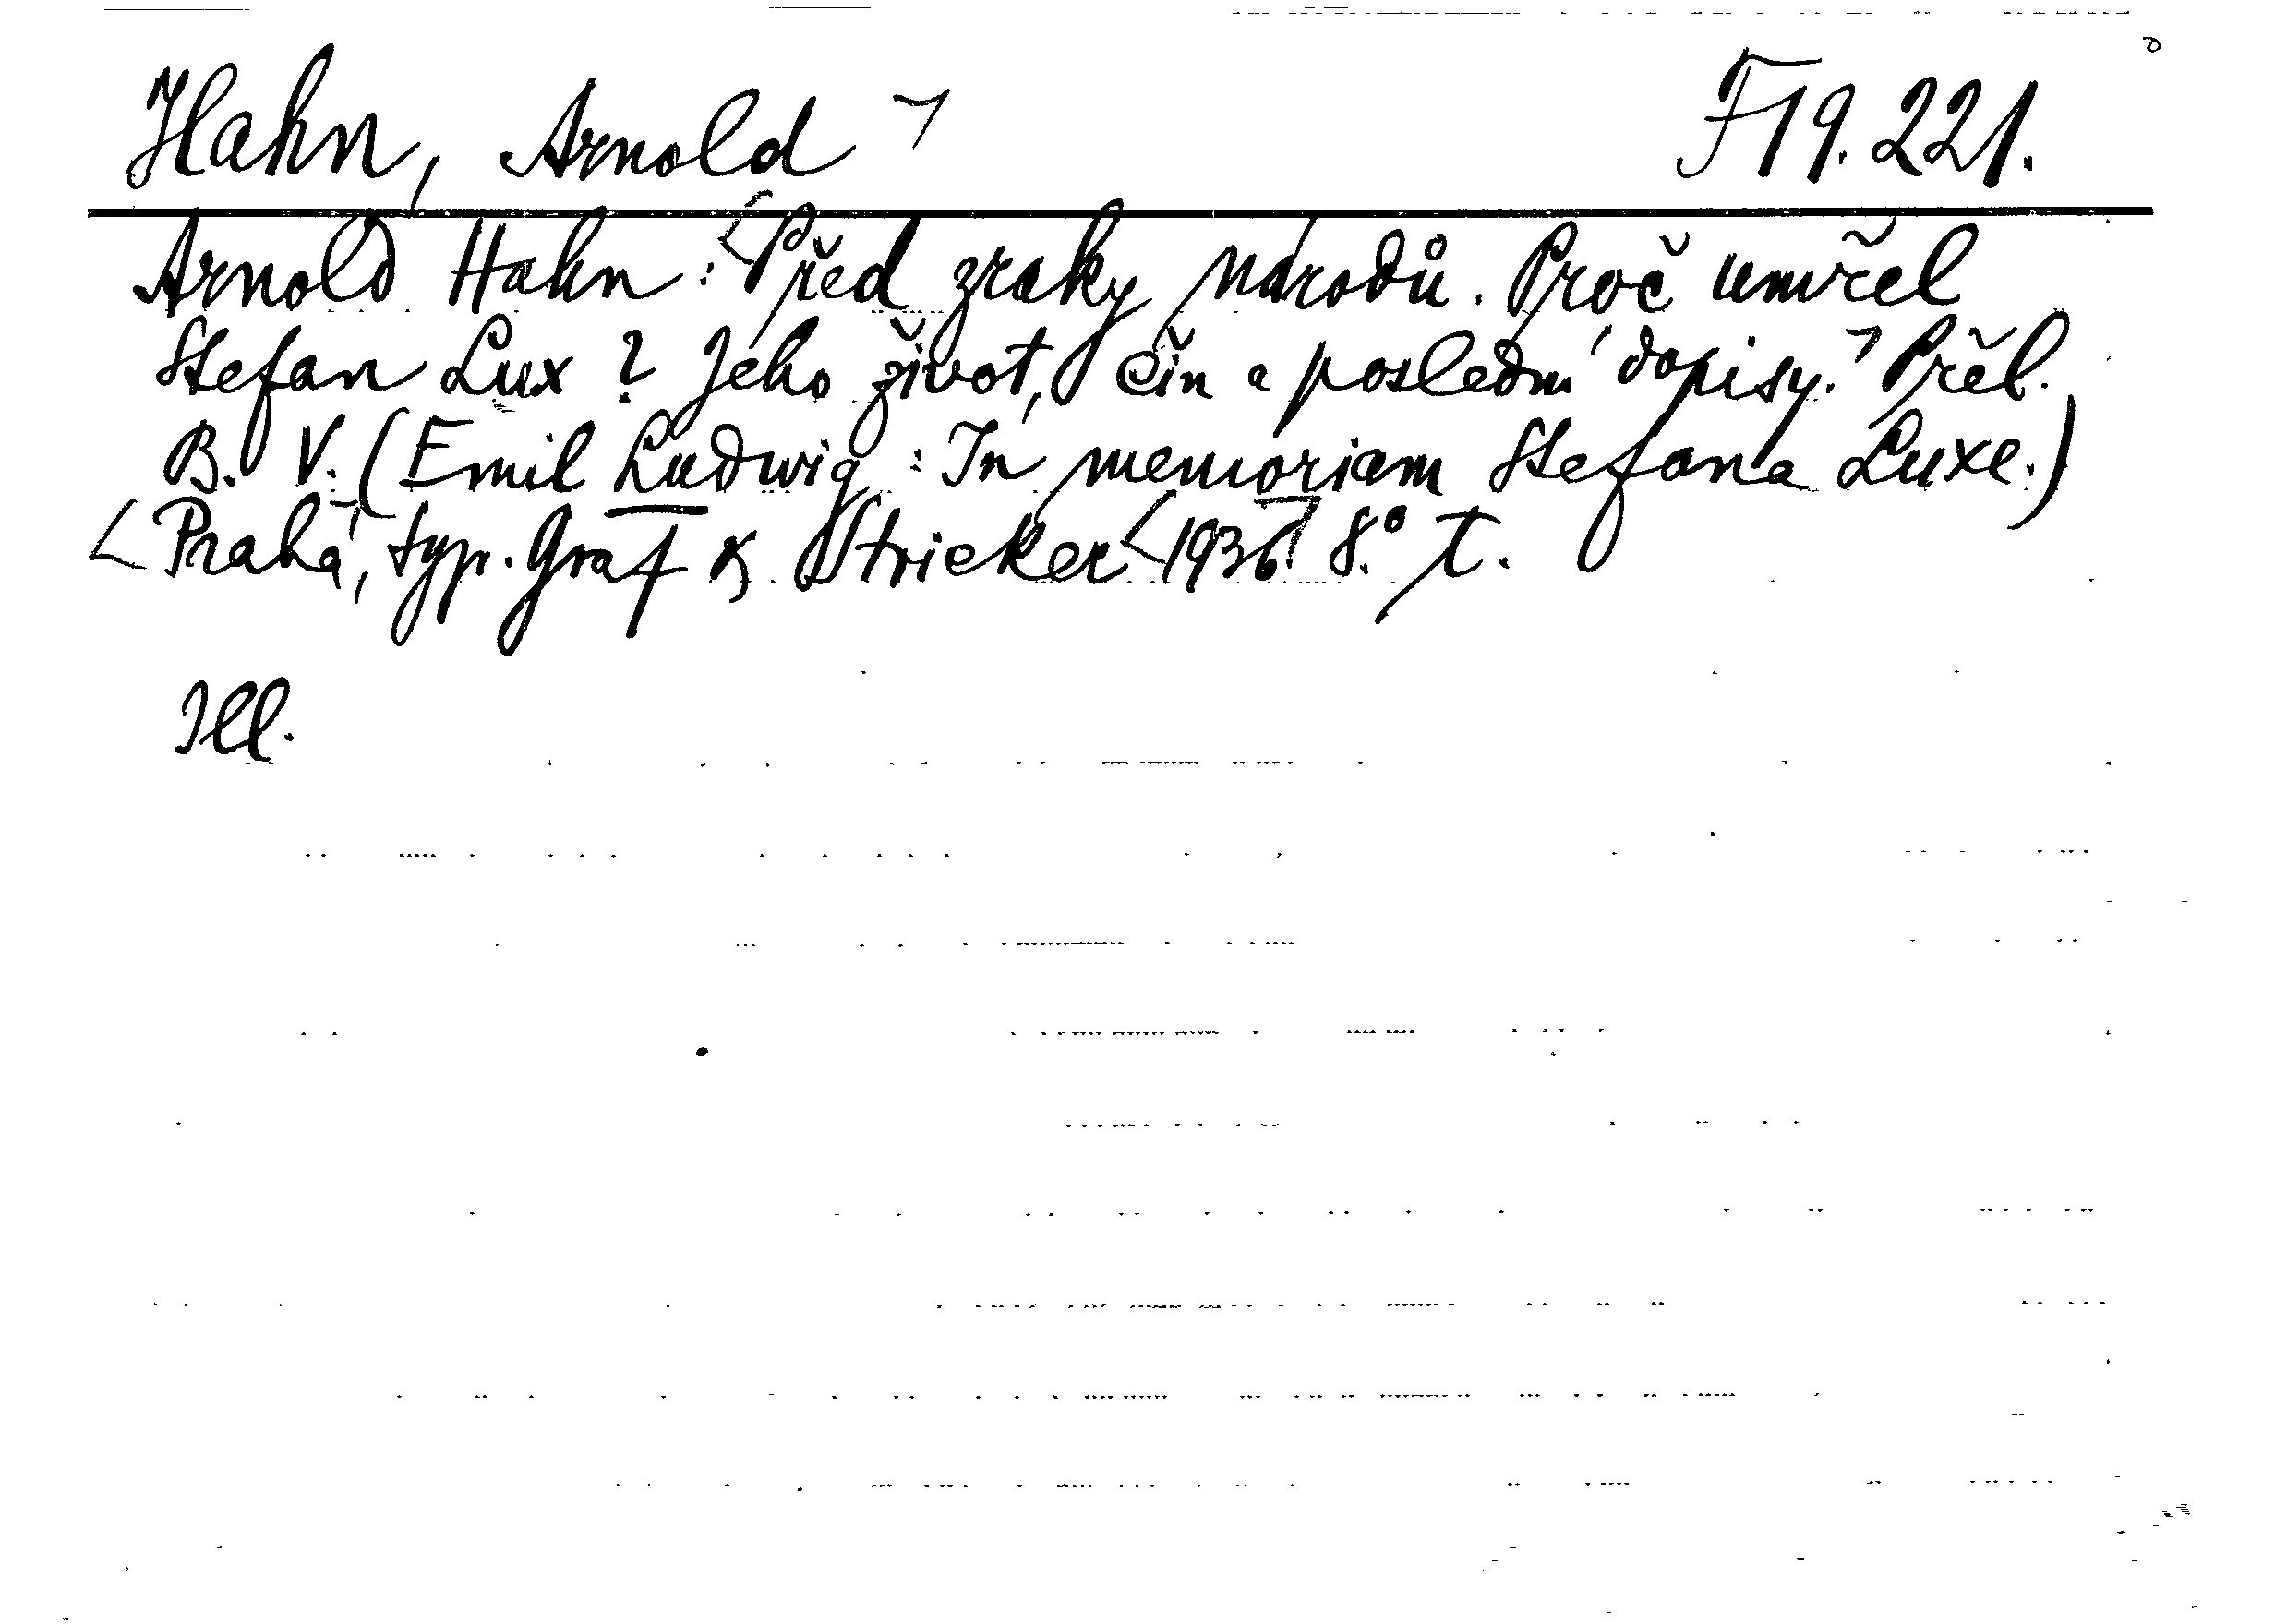 Hahn, Arnold F 19.221.
Arnold Hahn: Před zraky národů. Proč umřel
Stefan Lux? Jeho život, čin a poslední dopisy. Přel.
B. V. (Emil Ludwig: In memoriam Stefana Luxe.)
Praha, typ. Graf & Stricker 1936. 8.° T.
Ill.